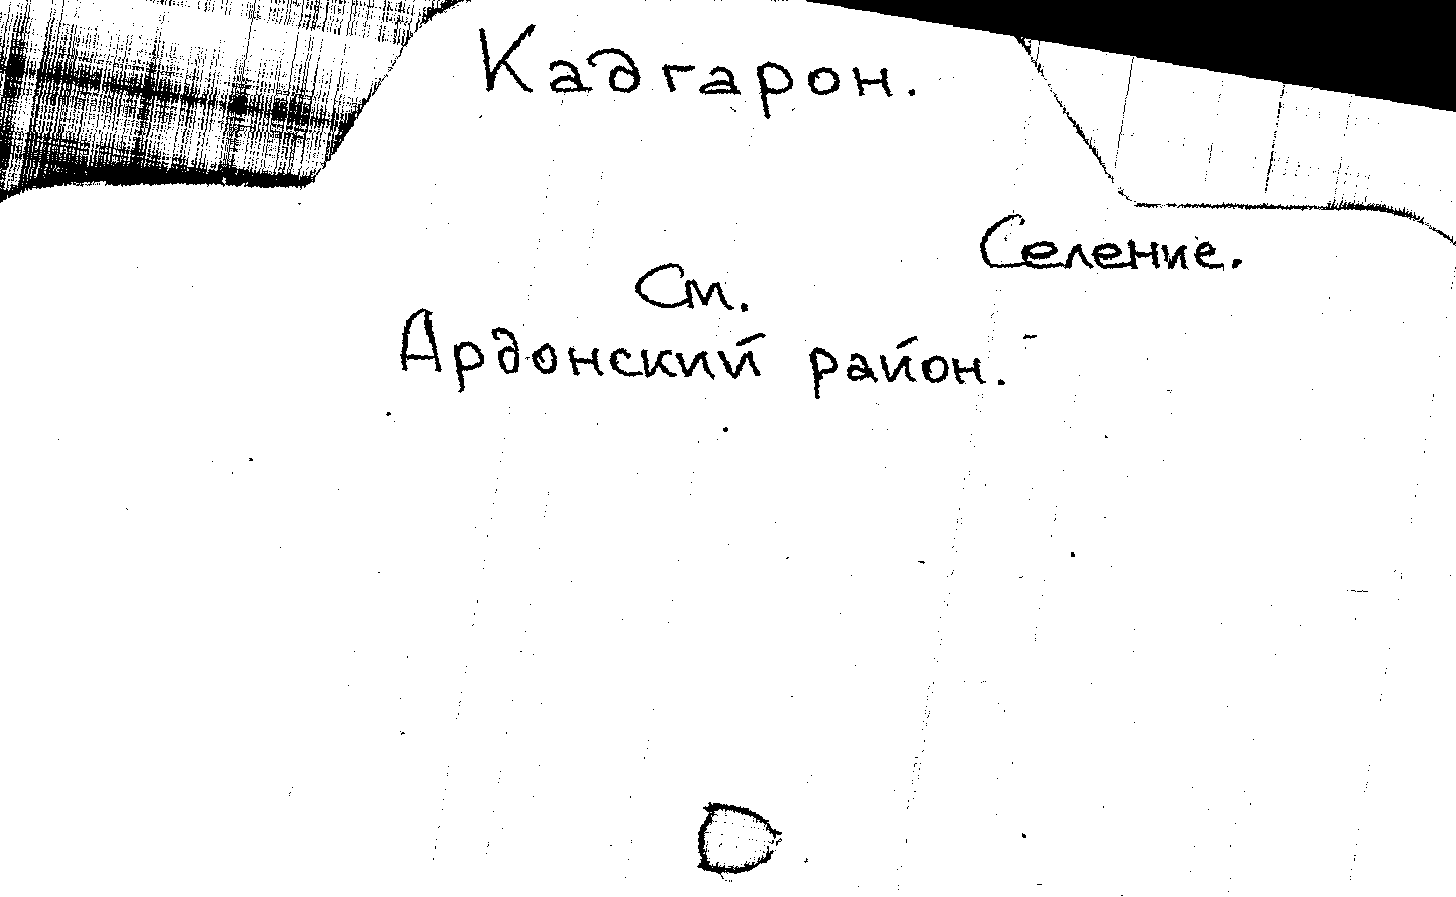 Кадгарон.
Селение.
См.
Ардонский район.